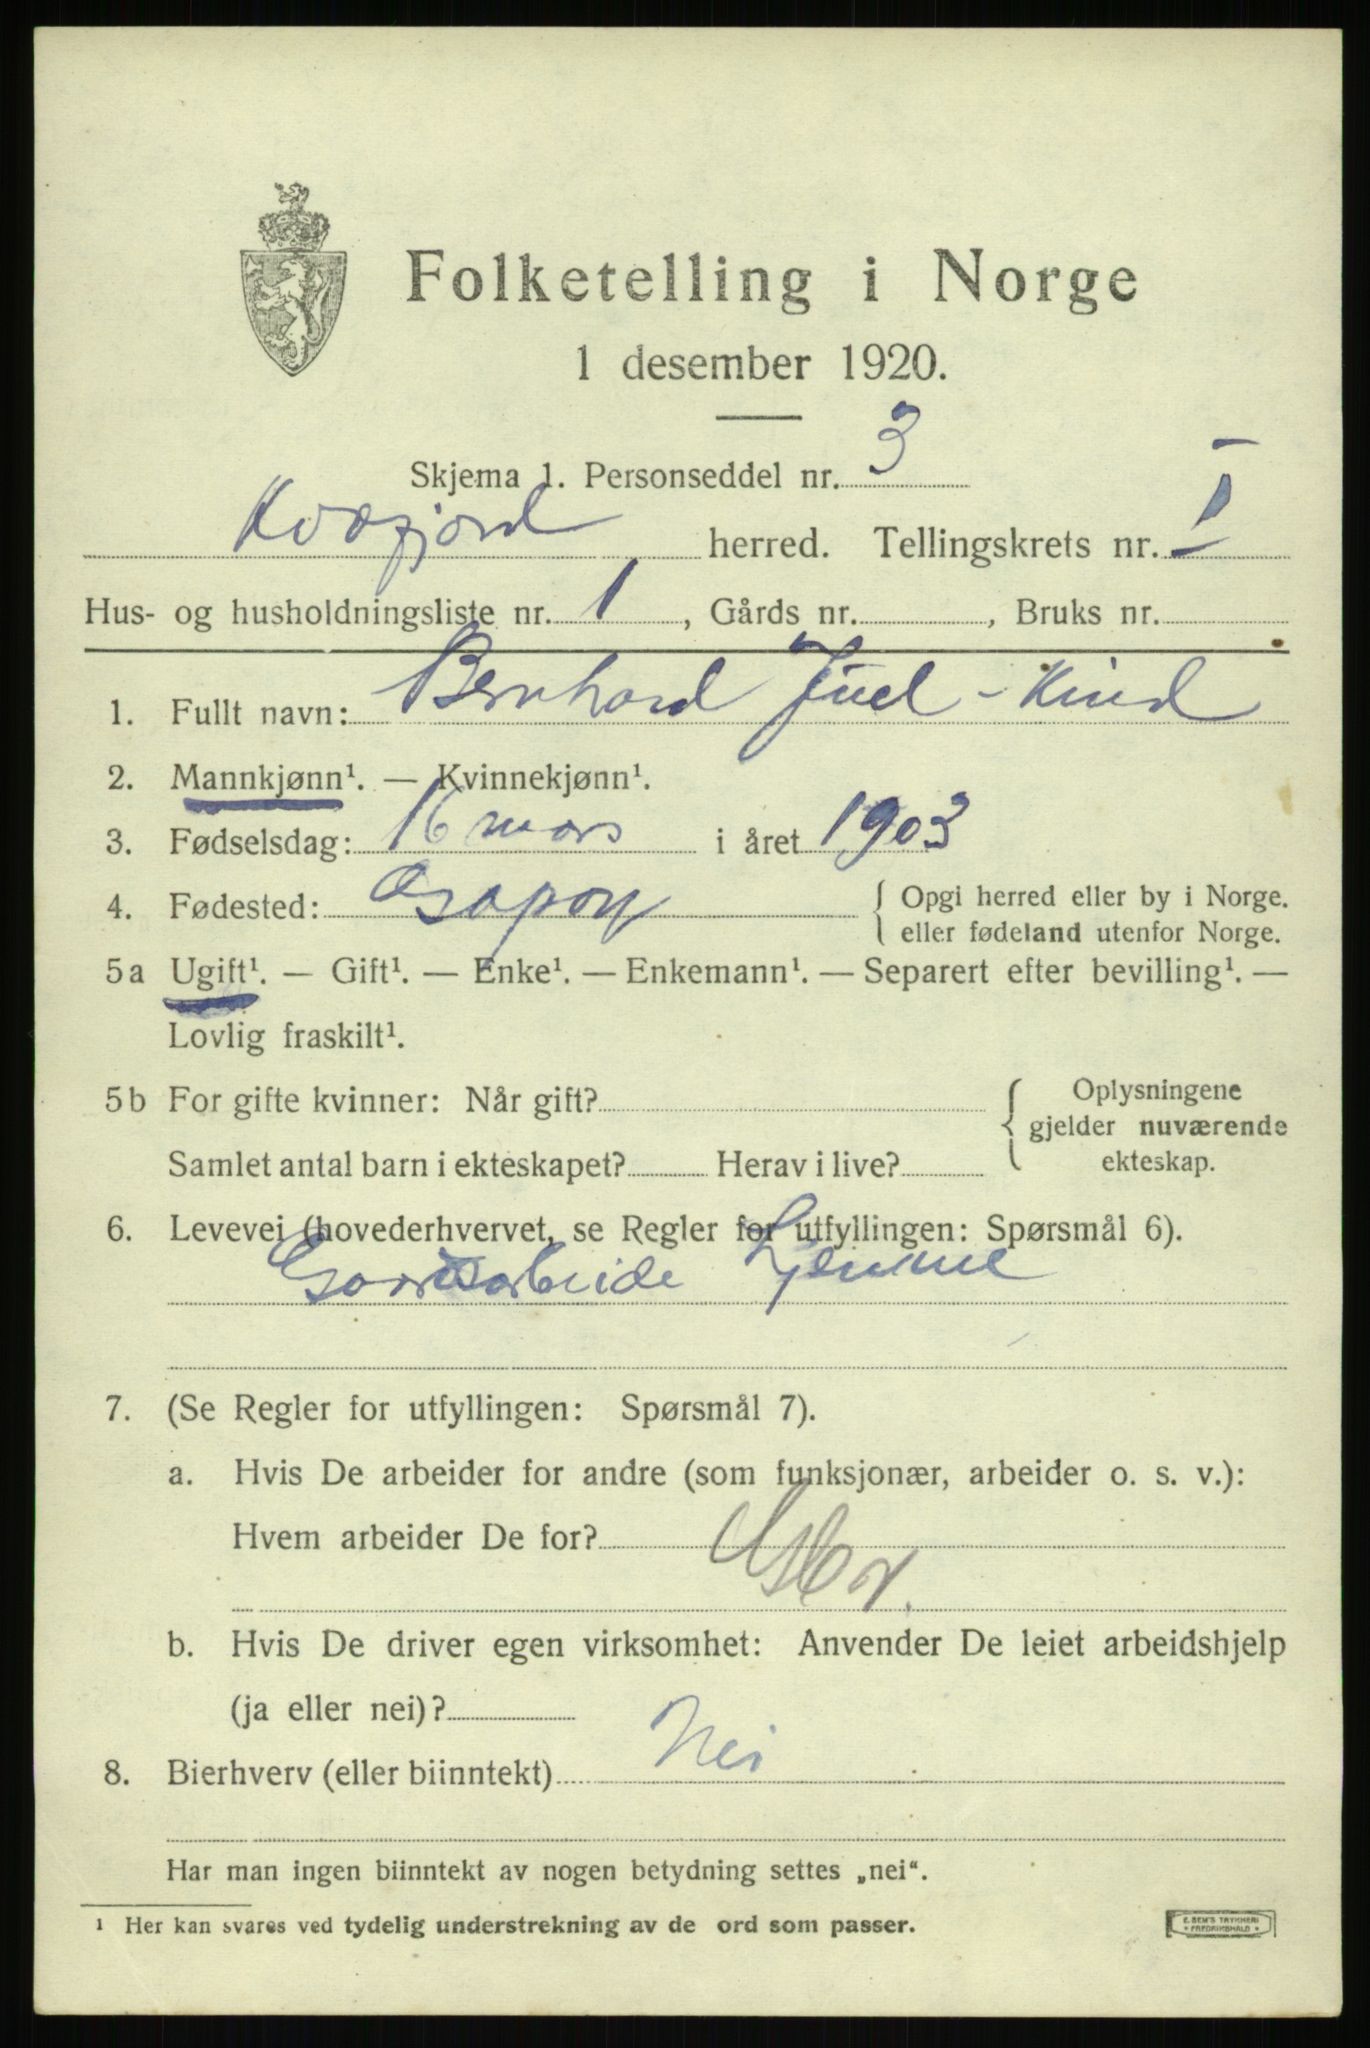 Folketelling i Norge
1 desember 1920.
Skjema 1. Personseddel nr. 3
Kvæfjord herred. Tellingskrets nr. I
Hus- og husholdningsliste nr. 1, Gårds nr. , Bruks nr.
1. Fullt navn: Bernhard Juel - Kind
2. Mannkjønn¹. — Kvinnekjønn¹.
3. Fødselsdag: 16 mars i året 1903
4. Fødested: { Opgi herred eller by i Norge.
eller fødeland utenfor Norge.
5a Ugift¹. — Gift¹. — Enke¹. — Enkemann¹. — Separert efter bevilling¹. —
Lovlig fraskilt¹.
5b For gifte kvinner: Når gift? { Oplysningene
gjelder nuværende
Samlet antal barn i ekteskapet? Herav i live? ekteskap.
6. Levevei (hovederhvervet, se Regler for utfyllingen: Spørsmål 6).
Gaardsarbeide hjemme
7. (Se Regler for utfyllingen: Spørsmål 7).
a. Hvis De arbeider for andre (som funksjonær, arbeider o. s. v.):
Hvem arbeider De for?
b. Hvis De driver egen virksomhet: Anvender De leiet arbeidshjelp
(ja eller nei)?
8. Bierhverv (eller biinntekt) Nei
Har man ingen biinntekt av nogen betydning settes „nei“.
¹ Her kan svares ved tydelig understrekning av de ord som passer.
E. SEM'S TRYKKERI
FREDRIKSHALD